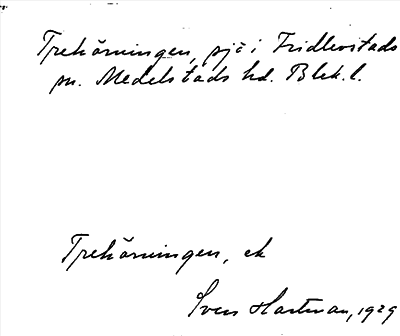 Trehörningen, sjö i Fridlevstads
sn. Medelstads hd. Blek.l.
Trehörningen, ek
Sven Hartman, 1929